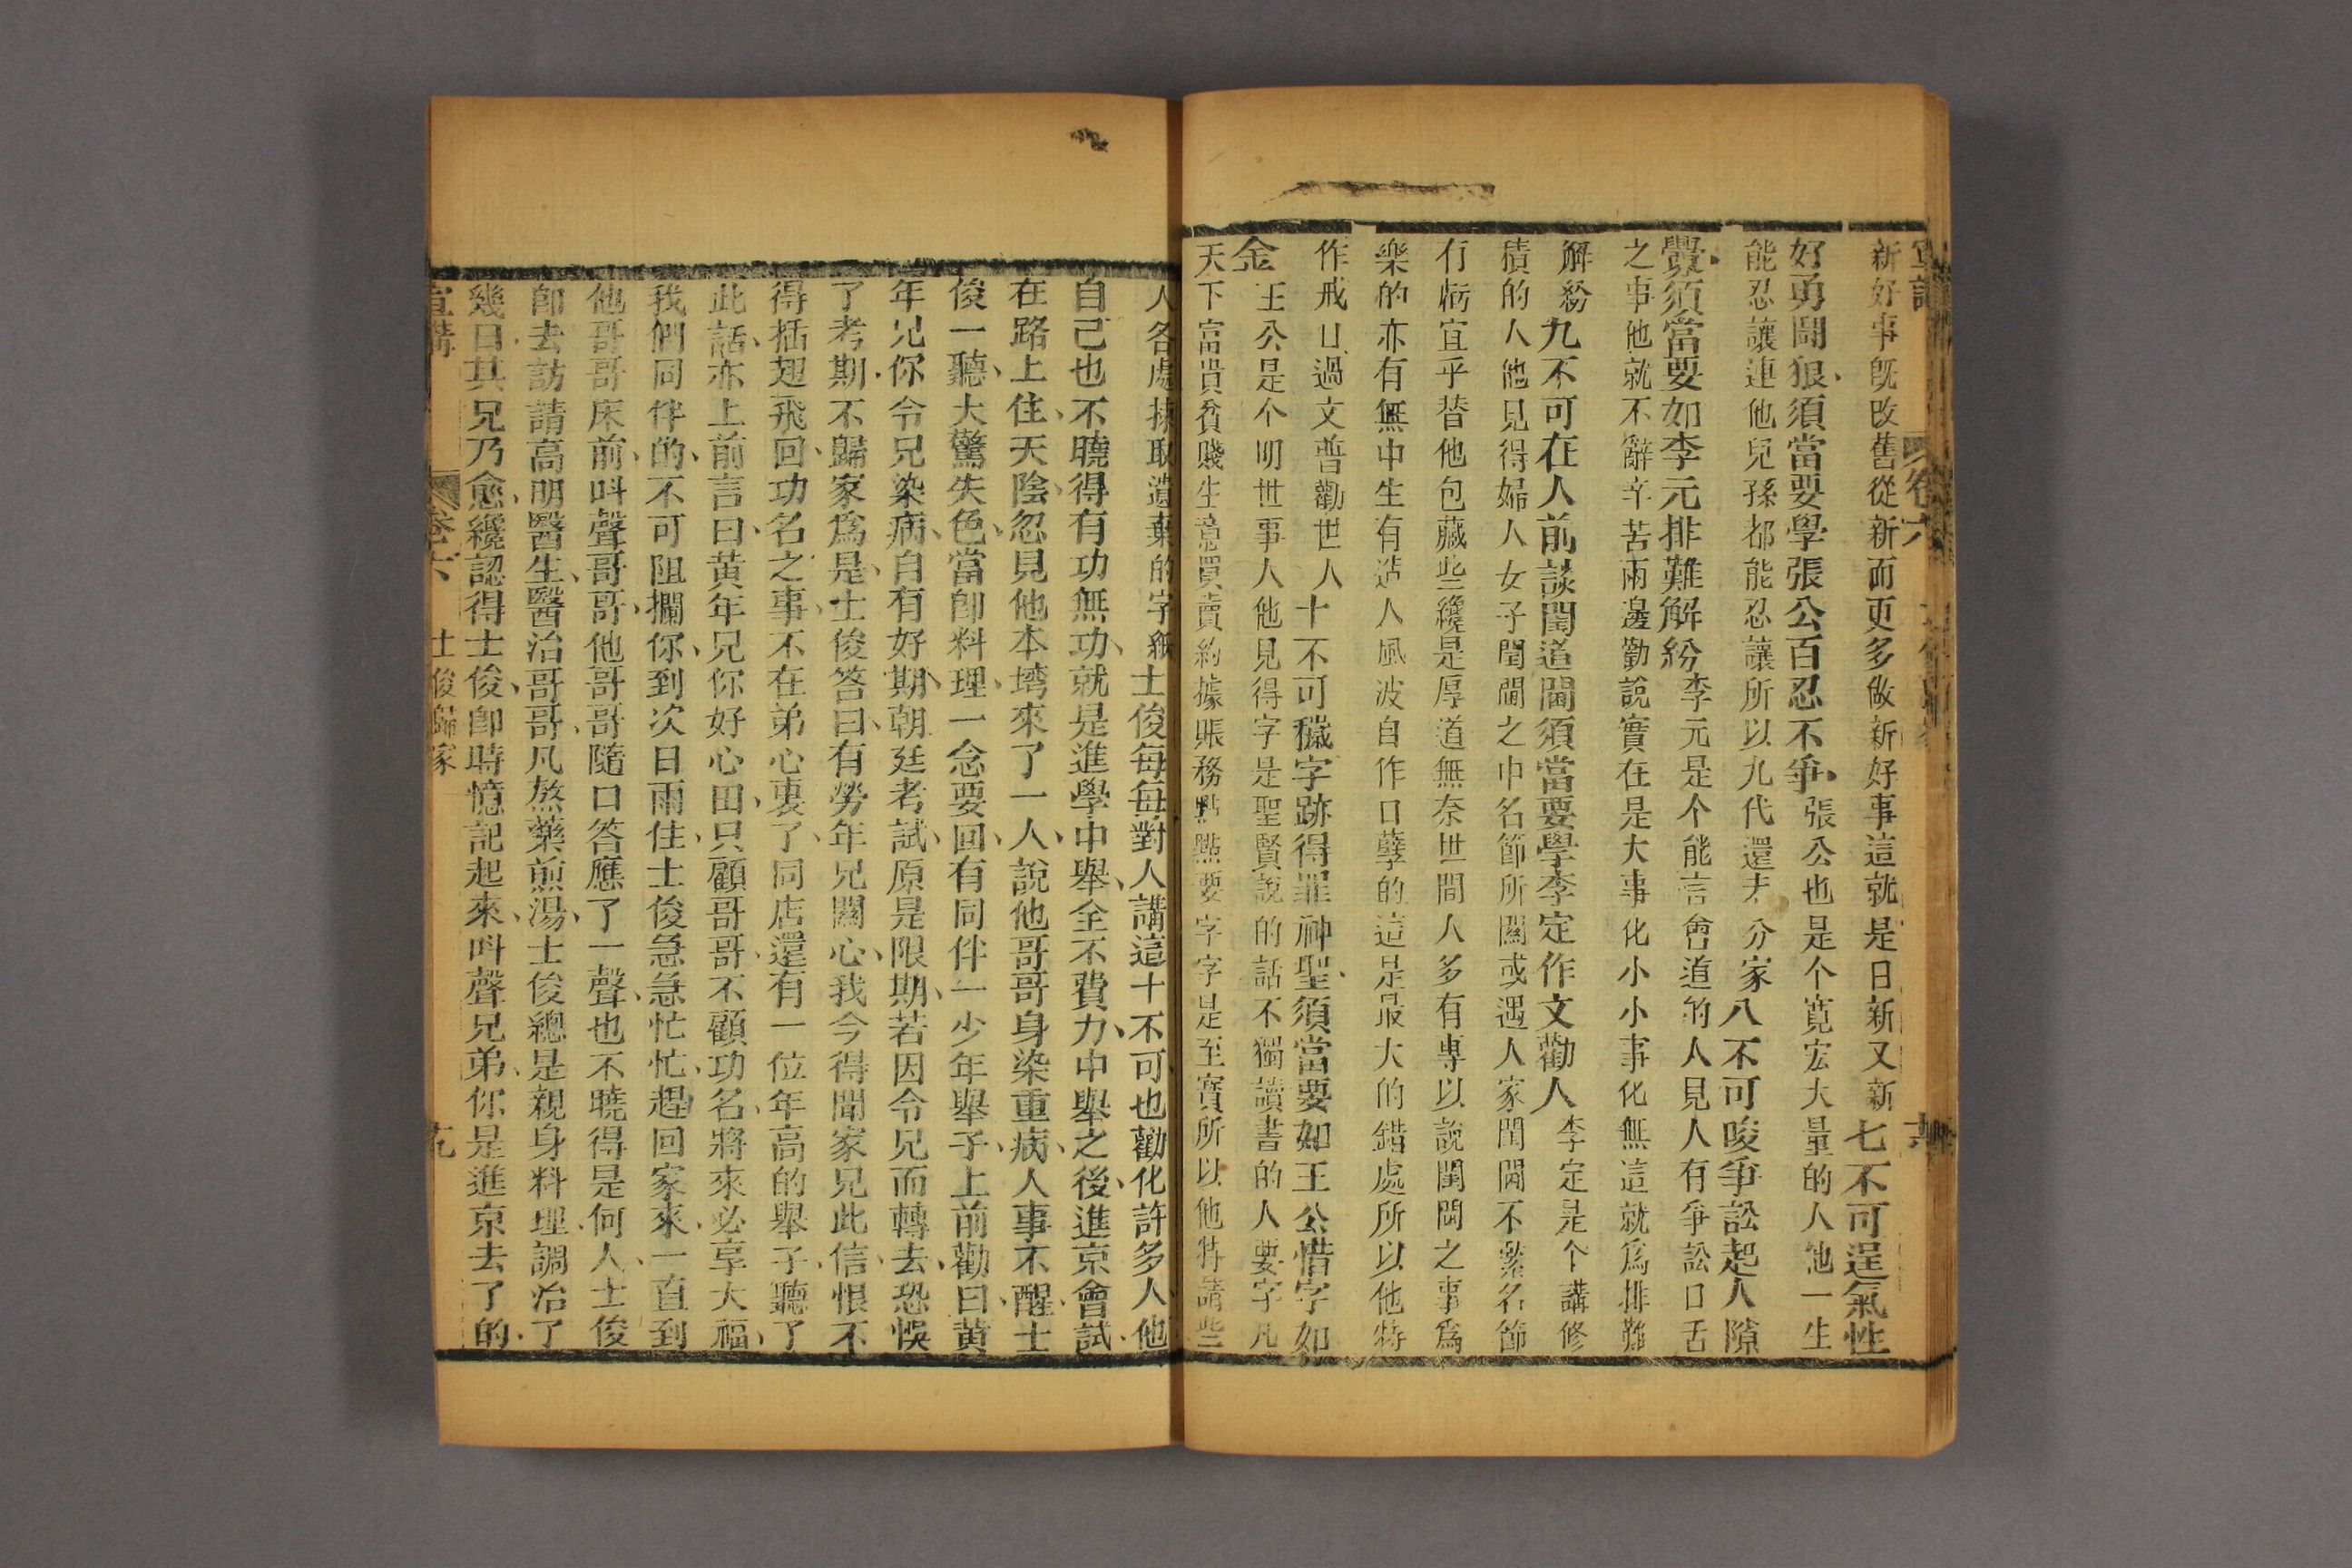 宣講 卷六
新好事既改舊從新而更多做新好事這就是日新又新七不可逞氣性
好勇鬪狠須當要學張公百忍不爭張公也是个寬宏大量的人他一生
能忍讓連他兒孫都能忍讓所以九代還未分家八不可唆爭訟起人隙
釁須當要如李元排難解紛李元是个能言會道的人見人有爭訟口舌
之事他就不辭辛苦兩邊勸說實在是大事化小小事化無這就爲排難
解紛九不可在人前談閨道閫須當要學李定作文勸人李定是个講修
積的人他見得婦人女子閨閫之中名節所關或遇人家閨閫不緊名節
有虧宜乎替他包藏些纔是厚道無奈世間人多有專以說閨閫之事爲
樂的亦有無中生有造人風波自作口孽的這是最大的錯處所以他特
作戒口過文普勸世人十不可穢字跡得罪神聖須當要如王公惜字如
金王公是个明世事人他見得字是聖賢說的話不獨讀書的人要字凡
天下富貴貧賤生意買賣約據賬務點點要字字是至寶所以他特請些
人各處揀取遺棄的字紙士俊每每對人講這十不可也勸化許多人他
自己也不曉得有功無功就是進學中舉全不費力中舉之後進京會試
在路上住天陰忽見他本塆來了一人說他哥哥身染重病人事不醒士
俊一聽大驚失色當卽料理一念要回有同伴一少年舉子上前勸曰黃
年兄你令兄染病自有好期朝廷考試原是限期若因令兄而轉去恐悞
了考期不歸家爲是士俊答曰有勞年兄關心我今得聞家兄此信恨不
得插翅飛回功名之事不在弟心裏了同店還有一位年高的舉子聽了
此話亦上前言曰黃年兄你好心田只顧哥哥不顧功名將來必享大福
我們同伴的不可阻攔你到次日雨住士俊急急忙忙趕回家來一直到
他哥哥床前呌聲哥哥他哥哥隨口答應了一聲也不曉得是何人士俊
卽去訪請高明醫生醫治哥哥凡熬藥煎湯士俊總是親身料理調治了
幾日其兄乃愈纔認得士俊卽時憶記起來呌聲兄弟你是進京去了的
宣講 卷六 士俊歸家 九